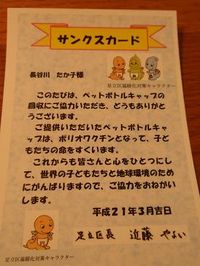 サンクスカード
長谷川 たか子様
足立区温暖化対策キャラクター
このたびは、ペットボトルキャップの
回収にご協力いただき、どうもありがと
うございます。
ご提供いただいたペットボトルキャッ
プは、ポリオワクチンとなって、子ど
もたちの命をすくいます。
これからも皆さんと心をひとつにし
て、世界の子どもたちと地球環境のため
にがんばりますので、ご協力をおねがい
します。
平成21年3月吉日
足立区長 近藤 やよい
足立区温暖化対策キャラクター